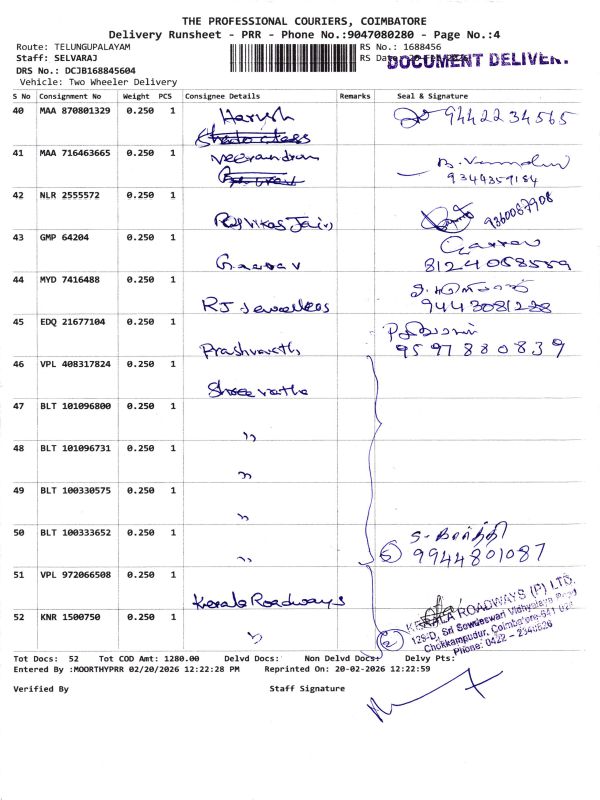 THE PROFESSIONAL COURIERS, COIMBATORE
Delivery Runsheet - PRR - Phone No.:9047080280 - Page No.:4
Route: TELUNGUPALAYAM RS No.: 1688456
Staff: SELVARAJ RS Date
DOCUMENT DELIVER.
DRS No.: DCJB168845604
Vehicle: Two Wheeler Delivery
S No Consignment No Weight PCS Consignee Details Remarks Seal & Signature
40 MAA 870801329 0.250 1 Harish 9442234565
41 MAA 716463665 0.250 1 Veerandram
9344359184
42 NLR 2555572 0.250 1 9360087908
Vikas Jain
43 GMP 64204 0.250 1 Gaurav
Gaurav 8124058589
44 MYD 7416488 0.250 1
RJ Jewellers 9443081288
45 EDQ 21677104 0.250 1
Prashvanth 9597880839
46 VPL 408317824 0.250 1
Shree vatha
47 BLT 101096800 0.250 1
"
48 BLT 101096731 0.250 1
"
49 BLT 100330575 0.250 1
"
50 BLT 100333652 0.250 1
" 5 9944801087
51 VPL 972066508 0.250 1
Kerala Roadways
KERALA ROADWAYS (P) LTD.
52 KNR 1500750 0.250 1
" 2
129-D, Sri Sowdeswari Vidhyalaya Road
Chokkampudur, Coimbatore-641 0
Phone: 0422 -
Tot Docs: 52 Tot COD Amt: 1280.00 Delvd Docs: Non Delvd Docs: Delvy Pts:
Entered By :MOORTHYPRR 02/20/2026 12:22:28 PM Reprinted On: 20-02-2026 12:22:59
Verified By Staff Signature